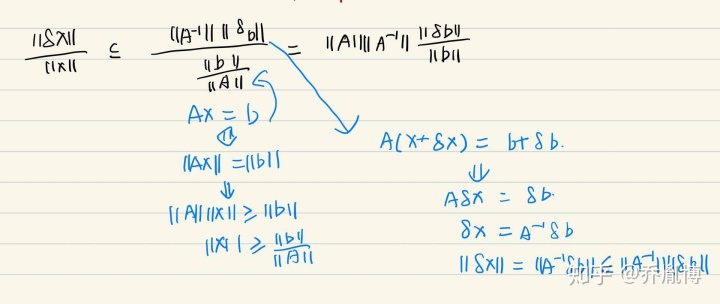 ||δx|| / ||x|| ≤ ||A⁻¹|| ||δb|| / (||b|| / ||A||) = ||A|| ||A⁻¹|| ||δb|| / ||b||
Ax = b
||Ax|| = ||b||
||A|| ||x|| ≥ ||b||
||x|| ≥ ||b|| / ||A||
A(x+δx) = b+δb.
Aδx = δb.
δx = A⁻¹δb
||δx|| = ||A⁻¹δb|| ≤ ||A⁻¹|| ||δb||
知乎 @乔胤博